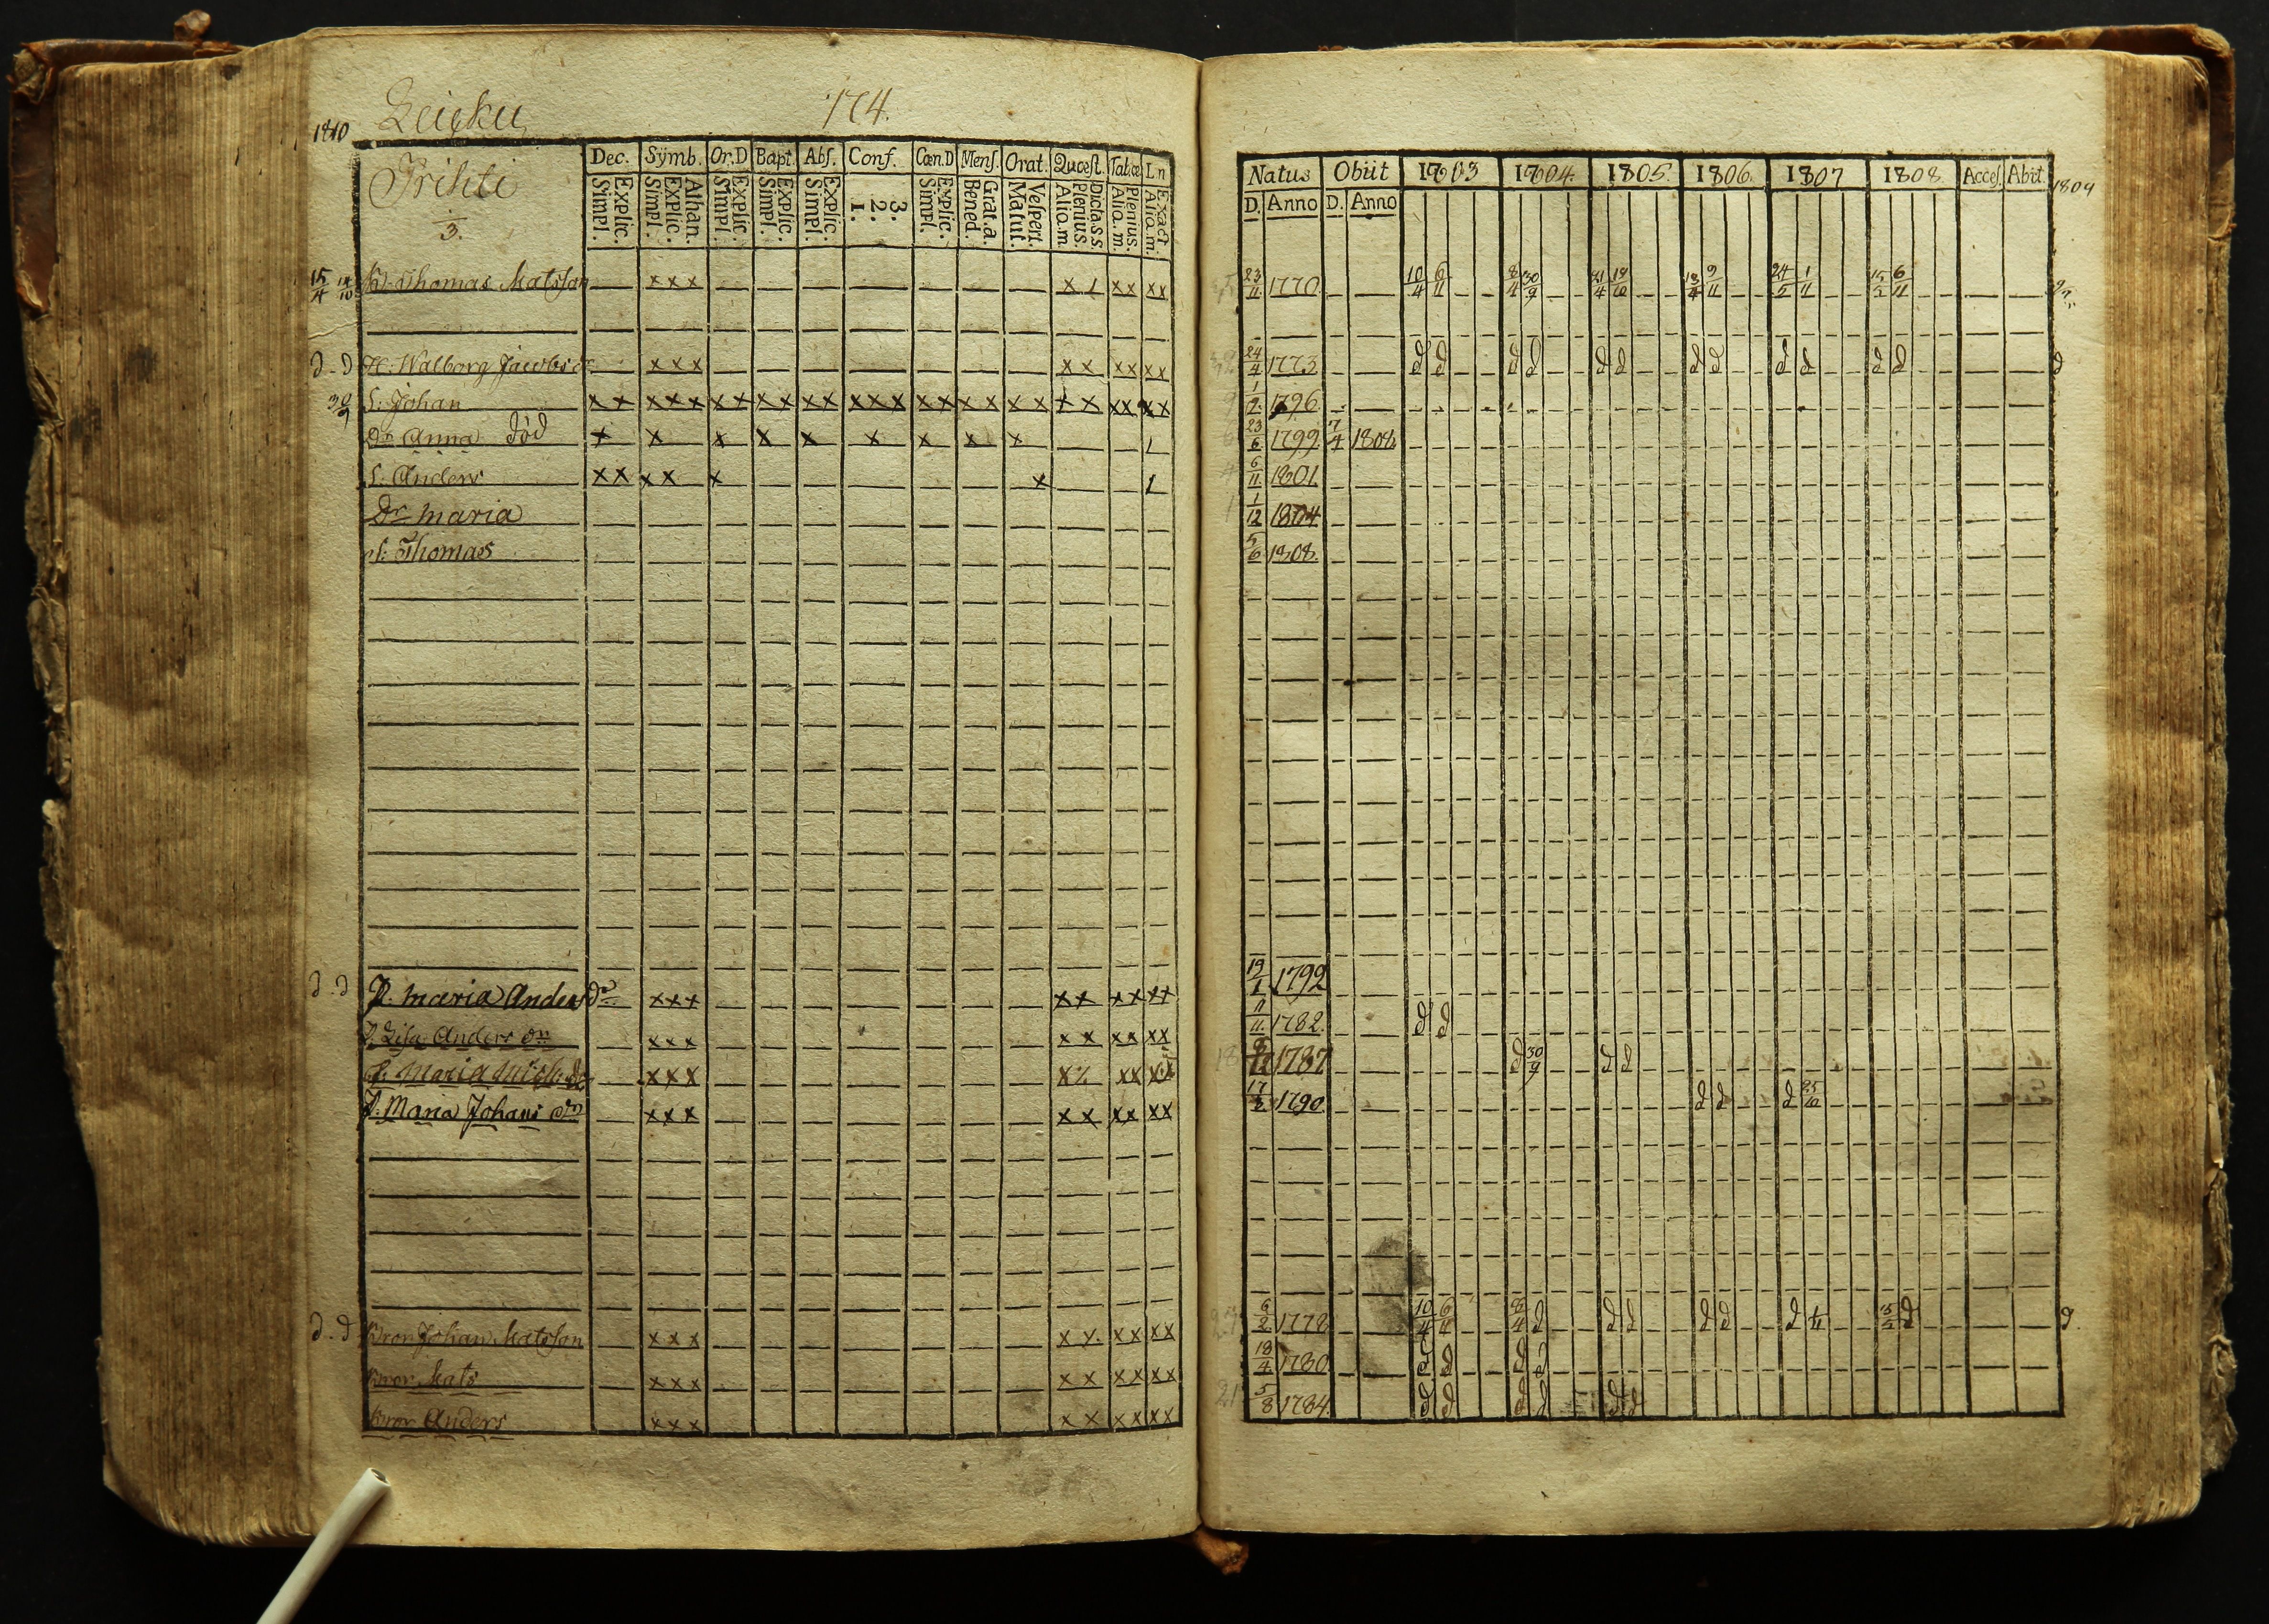 1810 Leieku 174.
Prihti
3.
Dec. Symb. Or.D Bapt. Abſ. Conf. Cœn.D Menſ. Orat. Quæſt. Tabœ Ln
Explic. Simpl. Athan. Explic. Simpl. Explic. Simpl. Explic. Simpl. Explic. Simpl. 3. 2. 1. Explic. Simpl. Grat.a. Bened. Veſpert. Matut. Dicta.s.s. Plenius. Alio.m. Plenius. Alia.m. Exact. Alia.m.
Natus Obiit 1803 1804. 1805. 1806. 1807 1808. Acceſ. Abit. 1809
D. Anno D. Anno
15/4 14/10 Thomas Matsſon xxx xx xx 23/11 1770. 10/4 6/11 8/4 30/9 21/4 19/10 13/4 9/11 24/5 1/11 15/5 6/11
d. d H: Walborg Jacobs dr xxx xx xx xx 24/4 1773 d d d d d d d d d d d d d
30/9 S: Johan xx xxx xx xx xx xxx xx xx xx xx xx xx 1/2 1796
Dr Anna död x x x x x x x x x 23/6 1799 7/4 1808
S: Anders xx xx x x 6/11 1801
Dr Maria 1/12 1804
S: Thomas 5/6 1808.
d. d P. Maria Anders dr xxx xx xx xx 19/1 1792
P. Lisa Anders dr xxx xx xx xx 11/11 1782. d d
P. Maria Mich: dr xxx xx 1787 d 30/9 d d
P. Maria Johans dr xxx xx xx xx 17/2 1790 d d d 25/10
d. d Bror Johan Matsſon xxx xx xx xx 6/2 1778 10/4 6/11 8/4 d d d d d d 1/11 15/5 d d.
Bror Mats xxx xx xx xx 18/4 1780 d d d d
21 Bror Anders xxx xx xx xx 5/8 1784. d d d d d d